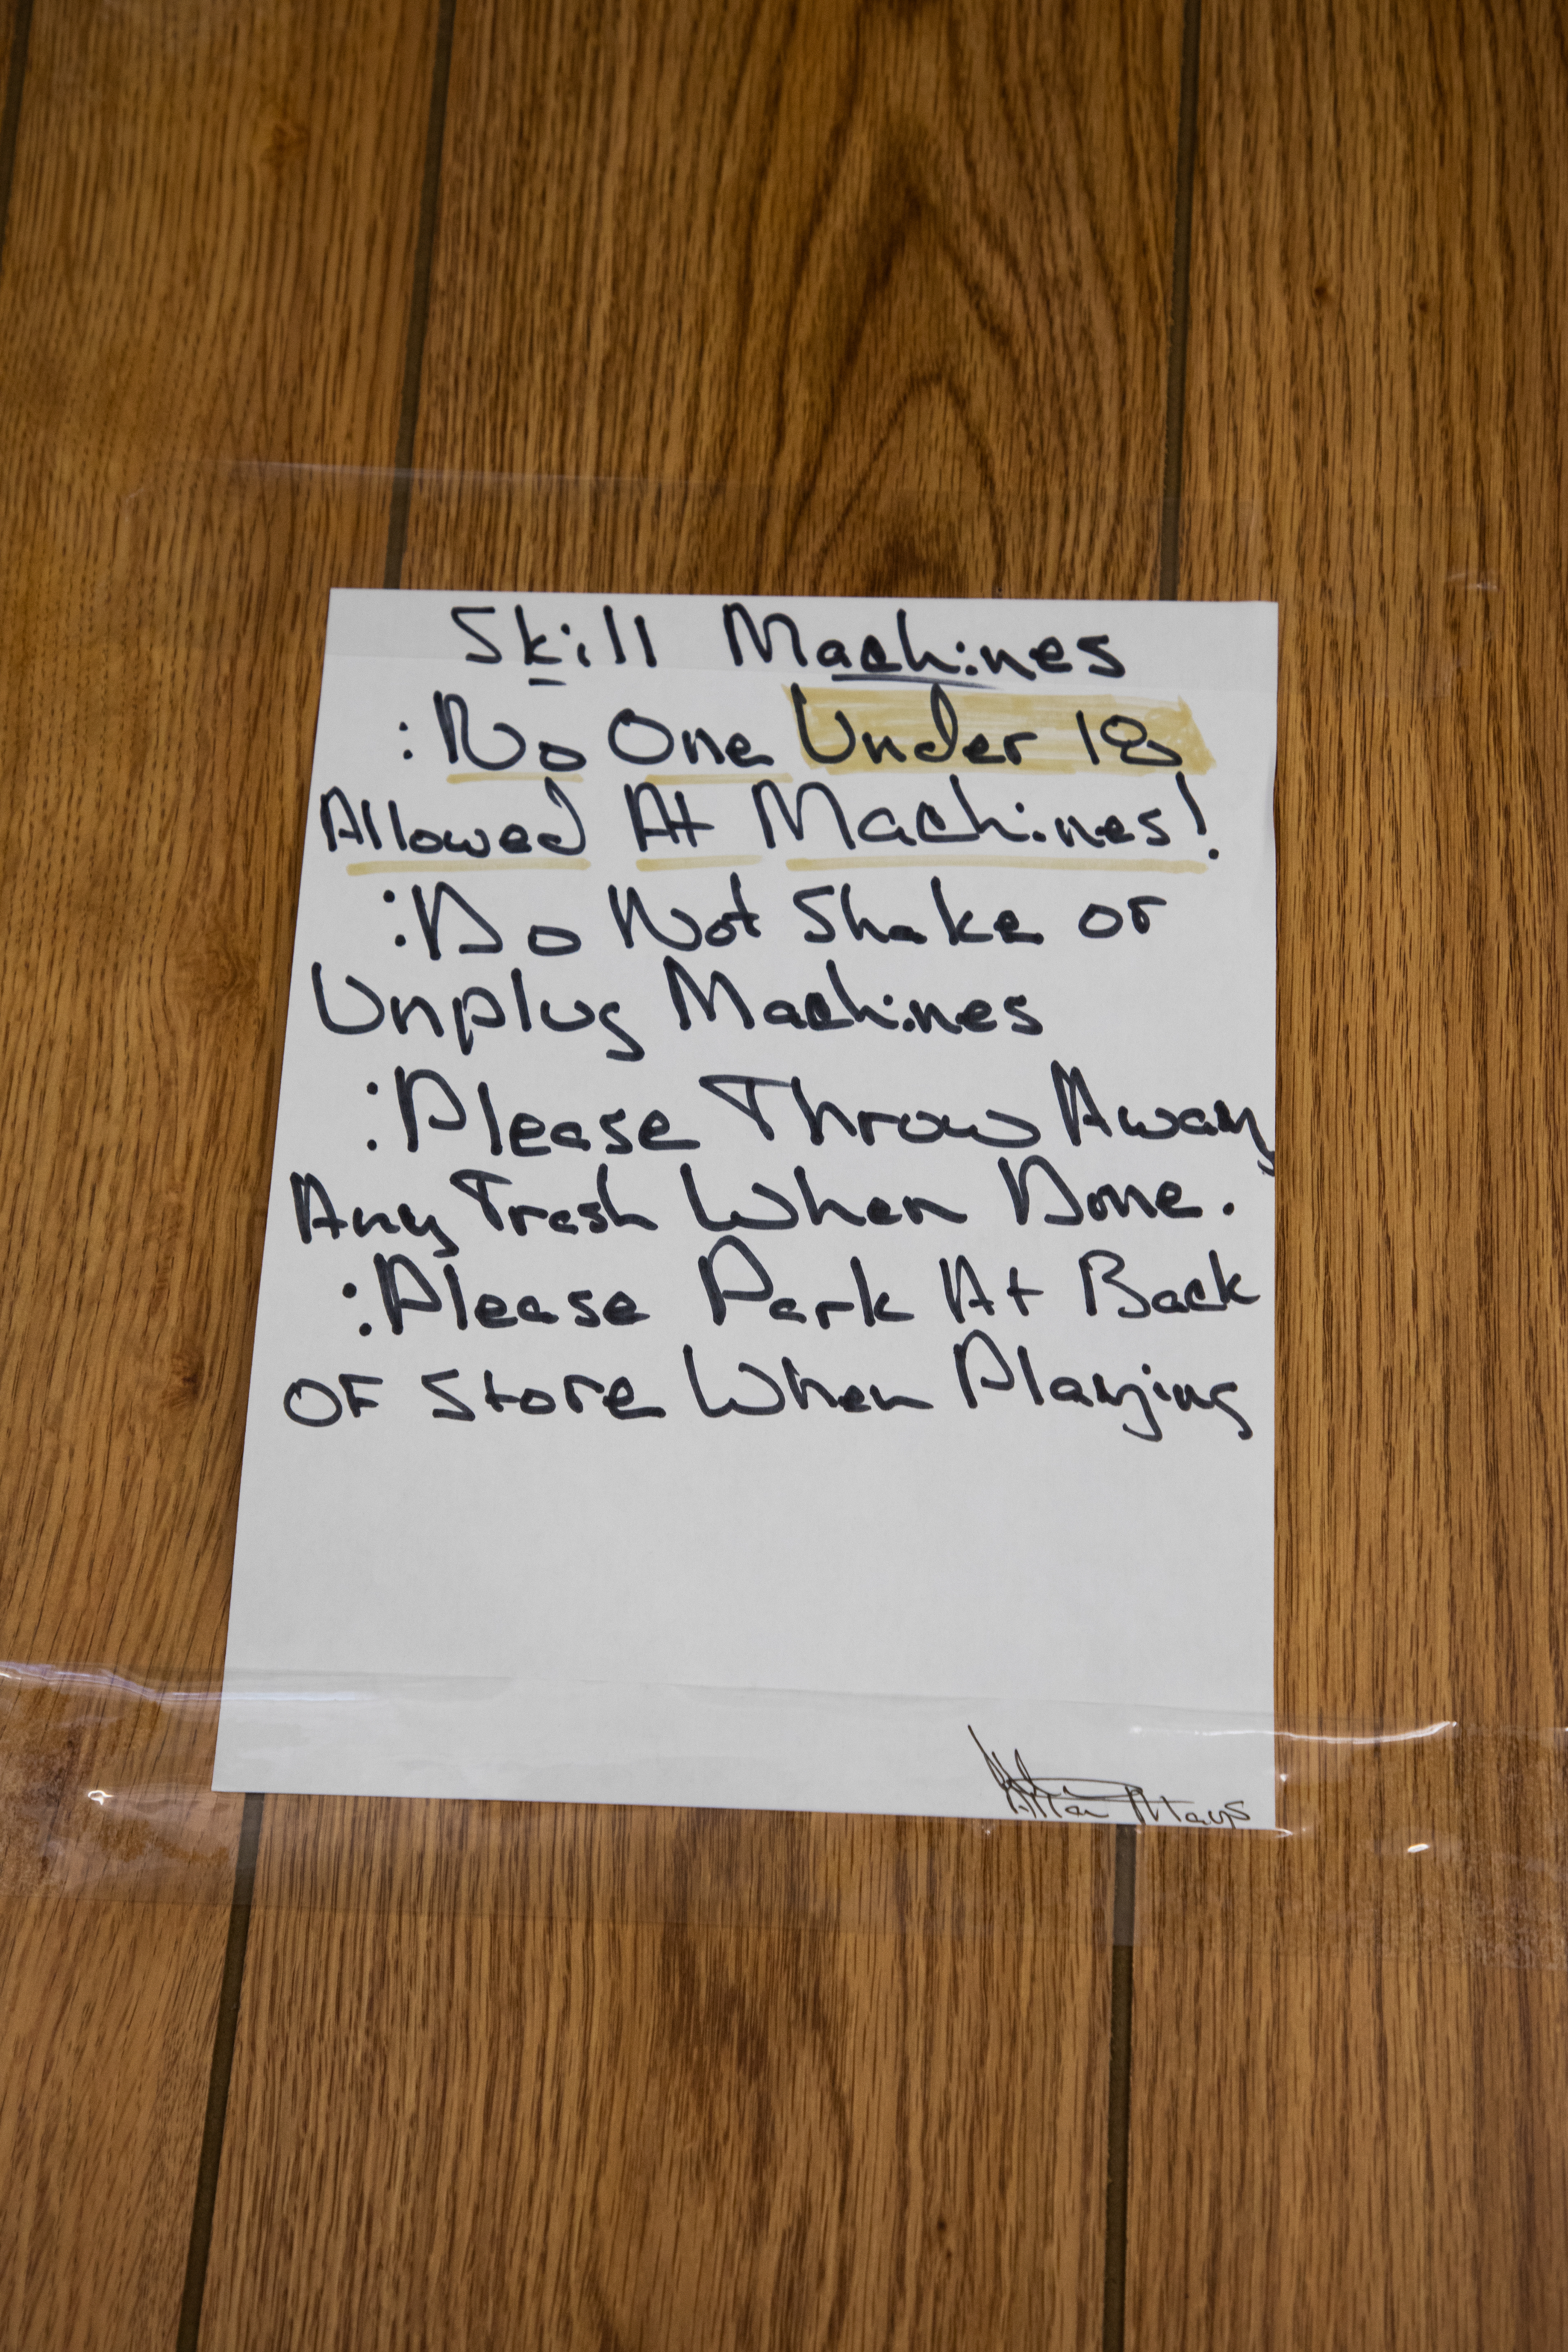 Skill Machines
: No One Under 18
Allowed At Machines!
: Do Not Shake or
Unplug Machines
: Please Throw Away
Any Trash When Done.
: Please Park At Back
OF Store When Playing
Mays